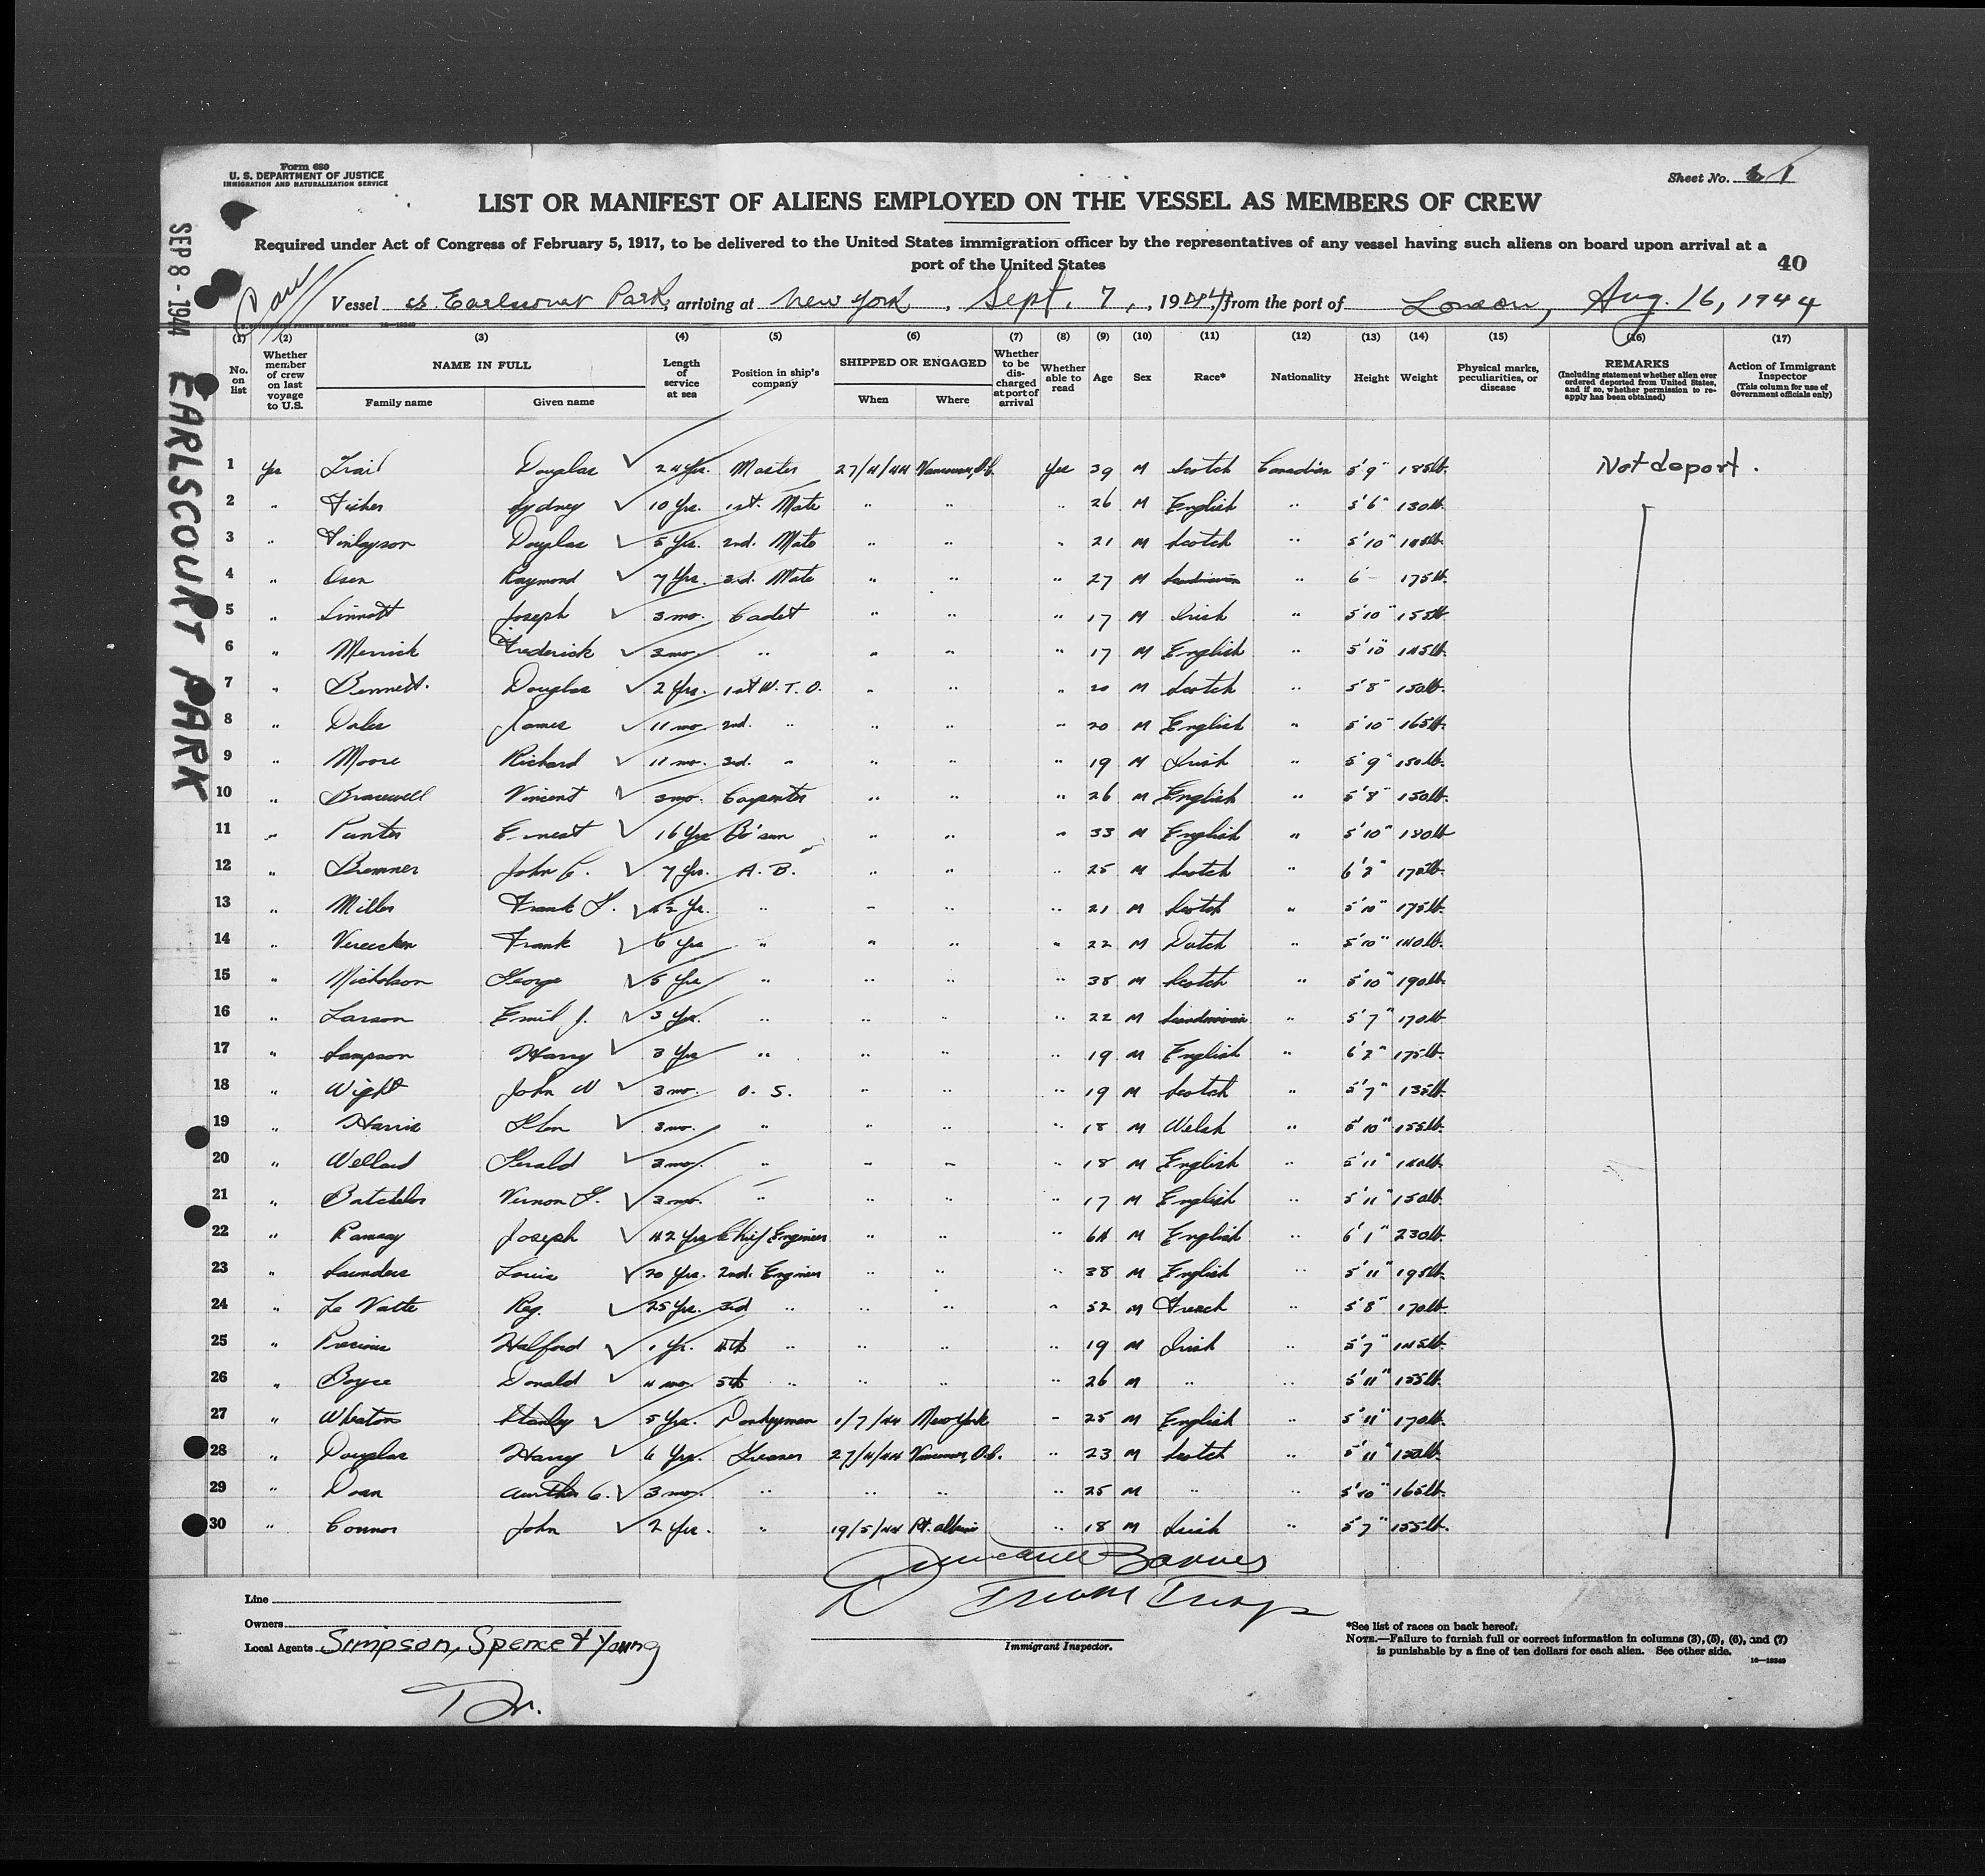 Form 680
U. S. DEPARTMENT OF JUSTICE
IMMIGRATION AND NATURALIZATION SERVICE
Sheet No. 1
LIST OR MANIFEST OF ALIENS EMPLOYED ON THE VESSEL AS MEMBERS OF CREW
Required under Act of Congress of February 5, 1917, to be delivered to the United States immigration officer by the representatives of any vessel having such aliens on board upon arrival at a
port of the United States
40
SEP 8 - 1944 EARLSCOURT PARK
Vessel ss. Earlscourt Park, arriving at New York, Sept. 7, 1944, from the port of London, Aug. 16, 1944
(1) (2) (3) (4) (5) (6) (7) (8) (9) (10) (11) (12) (13) (14) (15) (16) (17)
No. on list
Whether member of crew on last voyage to U.S.
NAME IN FULL
Family name
Given name
Length of service at sea
Position in ship's company
SHIPPED OR ENGAGED
When
Where
Whether to be discharged at port of arrival
Whether able to read
Age
Sex
Race*
Nationality
Height
Weight
Physical marks, peculiarities, or disease
REMARKS
(Including statement whether alien ever ordered deported from United States, and if so, whether permission to reapply has been obtained)
Action of Immigrant Inspector
(This column for use of Government officials only)
1 Yes Trail Douglas ✓ 24 Yrs. Master 27/4/44 Vancouver, B.C. Yes 39 M Scotch Canadian 5'9" 185lb. Not deport.
2 " Fisher Sydney ✓ 10 Yrs. 1st. Mate " " " 26 M English " 5'6" 130lb.
3 " Finlayson Douglas ✓ 5 Yrs. 2nd. Mate " " " 21 M Scotch " 5'10" 145lb.
4 " Osen Raymond ✓ 7 Yrs. 3rd. Mate " " " 27 M Scandinavian " 6'- 175lb.
5 " Sinnott Joseph ✓ 3 mo. Cadet " " " 17 M Irish " 5'10" 155lb.
6 " Merrick Frederick ✓ 3 mo. " " " " 17 M English " 5'10" 145lb.
7 " Bennett. Douglas ✓ 2 Yrs. 1st W. T. O. " " " 20 M Scotch " 5'8" 150lb.
8 " Dales James ✓ 11 mo 2nd. " " " " 20 M English " 5'10" 165lb.
9 " Moore Richard ✓ 11 mo. 3rd. " " " " 19 M Irish " 5'9" 150lb.
10 " Bracewell Vincent ✓ 3 mo. Carpenter " " " 26 M English " 5'8" 150lb.
11 " Punter Ernest ✓ 16 Yrs Bo'sun " " " 33 M English " 5'10" 180lb
12 " Bremner John C. ✓ 7 Yrs. A. B. " " " 25 M Scotch " 6'2"
13 " Miller Frank ✓ " " " " 21 M Scotch " 5'10" 175lb.
14 " Frank ✓ 6 Yrs " " " " 22 M Dutch " 5'10" 140lb.
15 " Nicholson George ✓ 5 Yrs " " " " 38 M Scotch " 5'10" 190lb.
16 " Larson Emil J. ✓ 3 Yrs. " " " " 22 M Scandinavian " 5'7" 170lb
17 " Sampson Harry ✓ 3 Yrs " " " " 19 M English " 6'2" 175lb.
18 " Wight John W ✓ 3 mo. O. S. " " " 19 M Scotch " 5'7" 135lb.
19 " Harris Glen ✓ 3 mo. " " " " 18 M Welsh " 5'10" 155lb.
20 " Wellard Gerald ✓ 3 mo. " " " " 18 M English " 5'11" 140lb.
21 " Batchelor Vernon ✓ 3 mo. " " " " 17 M English " 5'11" 150lb.
22 " Ramsay Joseph ✓ 42 Yrs Chief Engineer " " " 64 M English " 6'1" 230lb.
23 " Saunders Louis ✓ 20 Yrs. 2nd. Engineer " " " 38 M English " 5'11" 195lb.
24 " La Vatte Reg. ✓ 25 Yrs. 3rd " " " " 52 M French " 5'8" 170lb.
25 " Precious Halford ✓ 1 Yr. 4th " " " " 19 M Irish " 5'7" 145lb.
26 " Boyce Donald ✓ 4 mo 5th " " " " 26 M " " 5'11" 155lb.
27 " Wheaton Stanley ✓ 5 Yrs. Donkeyman 1/7/44 New York " 25 M English " 5'11" 170lb.
28 " Douglas Harry ✓ 6 Yrs. Greaser 27/4/44 Vancouver, B.C. " 23 M Scotch " 5'11"
29 " Doan Aurther C. ✓ 3 mo. " " " " 25 M " " 5'10" 165lb.
30 " Connor John ✓ 2 Yrs. " 19/5/44 Pt. Alberni " 18 M Irish " 5'7" 155lb.
Line
Owners
Local Agents Simpson, Spence & Young
Immigrant Inspector.
*See list of races on back hereof.
NOTE.—Failure to furnish full or correct information in columns (3), (5), (6), and (7)
is punishable by a fine of ten dollars for each alien. See other side.